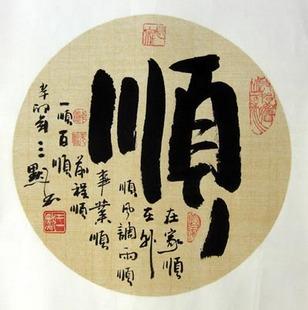 順
在家順
在外
順風調雨順
事業順
前程順
一順百順
辛卯